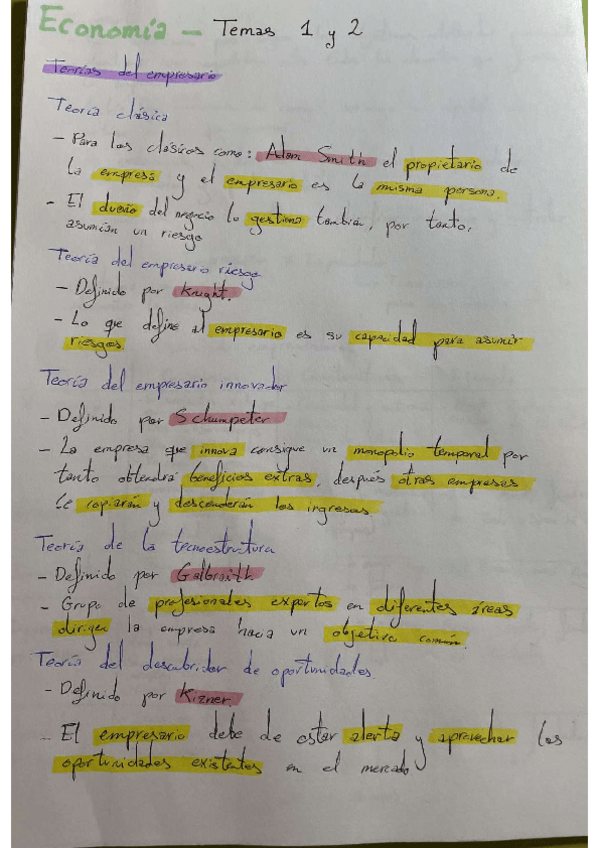 Economía - Temas 1 y 2
Teorías del empresario
Teoría clásica
- Para los clásicos como: Adam Smith el propietario de
la empresa y el empresario es la misma persona.
- El dueño del negocio lo gestiona también, por tanto,
asumían un riesgo
Teoría del empresario riesgo
- Definido por Knight.
- Lo que define al empresario es su capacidad para asumir
riesgos.
Teoría del empresario innovador
- Definido por Schumpeter
- La empresa que innova consigue un monopolio temporal por
tanto obtendrá beneficios extras, después otras empresas
le copiarán y descenderán los ingresos.
Teoría de la tecnoestructura
- Definido por Galbraith
- Grupo de profesionales expertos en diferentes áreas
dirigen la empresa hacia un objetivo común.
Teoría del descubridor de oportunidades.
- Definido por Kizner.
- El empresario debe de estar alerta y aprovechar las
oportunidades existentes en el mercado